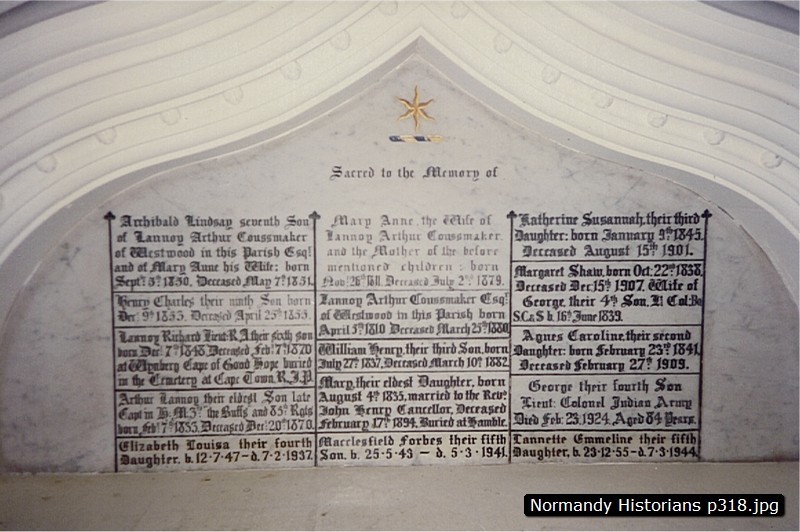 Sacred to the Memory of
Archibald Lindsay seventh Son
of Lannoy Arthur Coussmaker
of Westwood in this Parish Esqr
and of Mary Anne his Wife: born
Septr. 3rd 1850, Deceased May 7th 1851.
Henry Charles their ninth Son born
Decr 9th 1853. Deceased April 25th 1855.
Lannoy Richard Lieut: R.A. their sixth son
born Decr 7th 1848, Deceased, Feby 7th 1870
at Wynberg Cape of Good Hope buried
in the Cemetery at Cape Town, R.I.P.
Arthur Lannoy their eldest Son late
Capt in H.M. 3rd the Buffs and 85th Regts
born, Feby 7th 1833. Deceased Decr 20th 1870.
Elizabeth Louisa their fourth
Daughter. b. 12-7-47-d. 7-2-1937.
Mary Anne, the Wife of
Lannoy Arthur Coussmaker
and the Mother of the before
mentioned children: born
Novr 26th 1811. Deceased July 2nd 1879.
Lannoy Arthur Coussmaker Esqr
of Westwood in this Parish born
April 5th 1810 Deceased March 25th 1880.
William Henry, their third Son, born
July 27th 1837. Deceased March 10th 1882.
Mary, their eldest Daughter, born
August 4th 1835, married to the Revd
John Henry Cancellor, Deceased
February 17th 1894. Buried at Hamble.
Macclesfield Forbes their fifth
Son. b. 25-5-43 - d. 5-3-1941.
Katherine Susannah, their third
Daughter: born January 9th 1845.
Deceased August 15th 1901.
Margaret Shaw, born Oct: 22nd 1838,
Deceased Dec 15th 1907, Wife of
George, their 4th Son, Lt Col: Be
S.C. & S b. 16th June 1839.
Agnes Caroline, their second
Daughter: born February 23rd 1841,
Deceased February 27th 1909.
George their fourth Son
Lieut: Colonel Indian Army
Died Feb: 23, 1924, Aged 84 Years.
Lannette Emmeline their fifth
Daughter, b. 23-12-55-d. 7-3-1944.
Normandy Historians p318.jpg